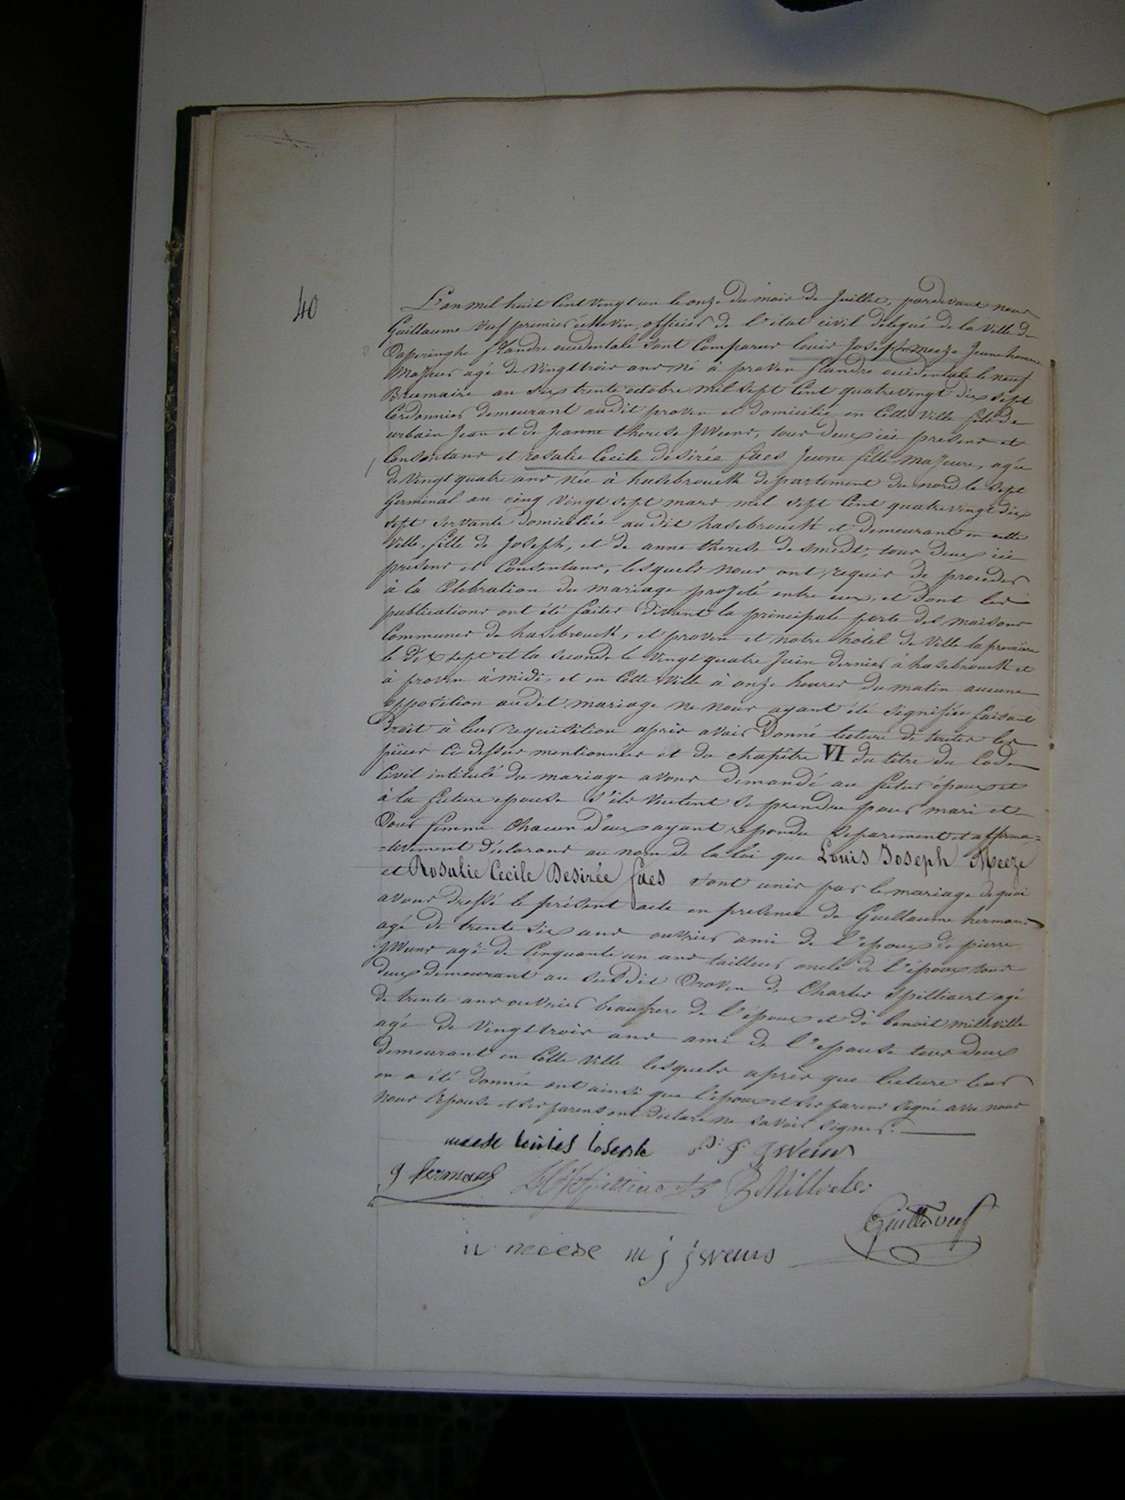 40
L'an mil huit cent vingt un le onze du mois de Juillet, pardevant nous
Guillaume Veuf premier échevin, officier de l'état civil délégué de la Ville de
Poperinghe flandre occidentale sont comparus Louis Joseph Meeze Jeune homme
Majeur agé de Vingt trois ans né à proven flandre occidentale le neuf
Brumaire an six trente octobre mil sept cent quatrevingt dix sept
Cordonnier demeurant audit proven et domicilié en cette Ville fils de
urbain Jean et de Jeanne therese JWeins, tous deux ici presens et
Consentans et rosalie Cecile désirée faes Jeune fille Majeure, agée
de Vingt quatre ans née à hasebrouck departement du nord le sept
Germinal an cinq Vingt sept mars mil sept Cent quatrevingt dix
sept servante domiciliée audit hasebrouck et demeurant en cette
Ville, fille de Joseph, et de anne therese desmedt, tous deux ici
presens et Consentans, lesquels nous ont requis de proceder
à la Celebration du mariage projeté entre eux, et dont les
publications ont été faites devant la principale porte des maisons
Communes de hasebrouck, et proven et notre hotel de Ville la premiere
le dix sept et la seconde le Vingt quatre Juin dernier à hasebrouck et
à proven à midi, et en Cette Ville à onze heures du matin aucune
opposition audit mariage ne nous ayant été signifiée faisant
droit à leur requisition après avoir Donné lecture de toutes les
pièces ci dessus mentionnées et du chapitre VI du titre du Code
Civil intitulé du mariage avons demandé au futur époux et
à la future epouse s'ils veulent se prendre pour mari et
pour femme Chacun d'eux ayant répondu separement et affirma=
=tivement déclarons au nom de la loi que Louis Joseph Meeze
et Rosalie Cecile Desirée faes sont unis par le mariage de quoi
avons dressé le présent acte en presence de Guillaume hermans
agé de trente six ans ouvrier ami de l'epoux de pierre
JWeins agé de Cinquante un ans tailleur oncle de l'époux tous
deux demeurant au susdit Proven de Charles Spilliaert agé
de trente ans ouvrier beaufrere de l'époux et de benoit Milleville
agé de Vingt trois ans ami de l'epouse tous deux
demeurant en Cette Ville lesquels après que lecture leur
en a été donnée ont ainsi que l'epoux et ses parens signé avec nous
nous l'epouse et ses parens ont declaré ne savoir signer.
meese louies loseph P: J: jweins
g hermans B Milleville
Guill. Veuf
u meese m j jweins